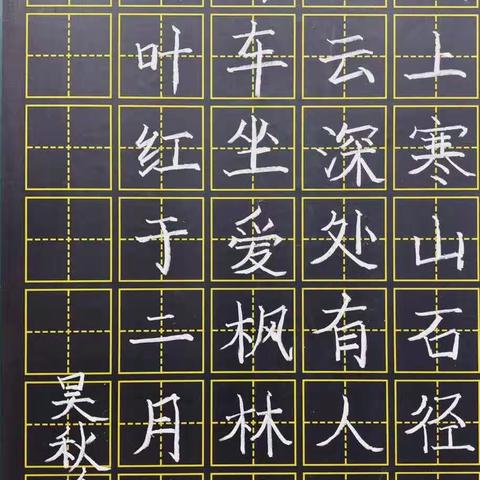 上寒山石径
云深处有人
车坐爱枫林
叶红于二月
吴秋